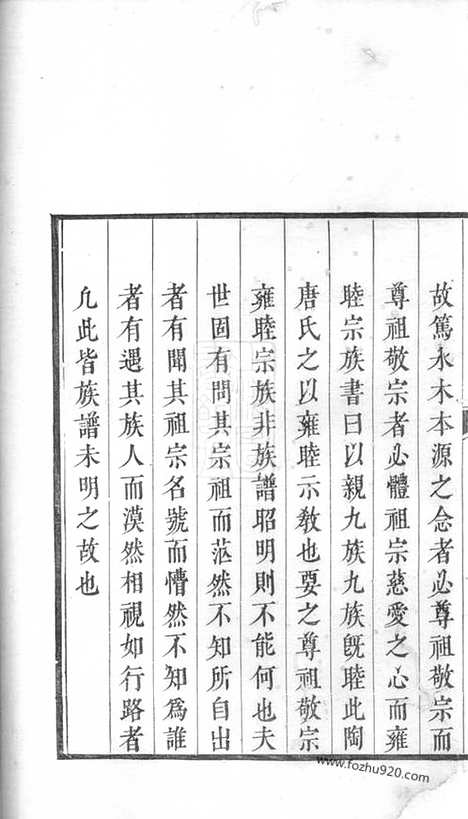 故篤水木本源之念者必尊祖敬宗而
尊祖敬宗者必體祖宗慈愛之心而雍
睦宗族書曰以親九族九族既睦此陶
唐氏之以雍睦示教也要之尊祖敬宗
雍睦宗族非族譜昭明則不能何也夫
世固有問其宗祖而茫然不知所自出
者有聞其祖宗名號而懵然不知為誰
者有遇其族人而漠然相視如行路者
凡此皆族譜未明之故也
www.fozhu920.com